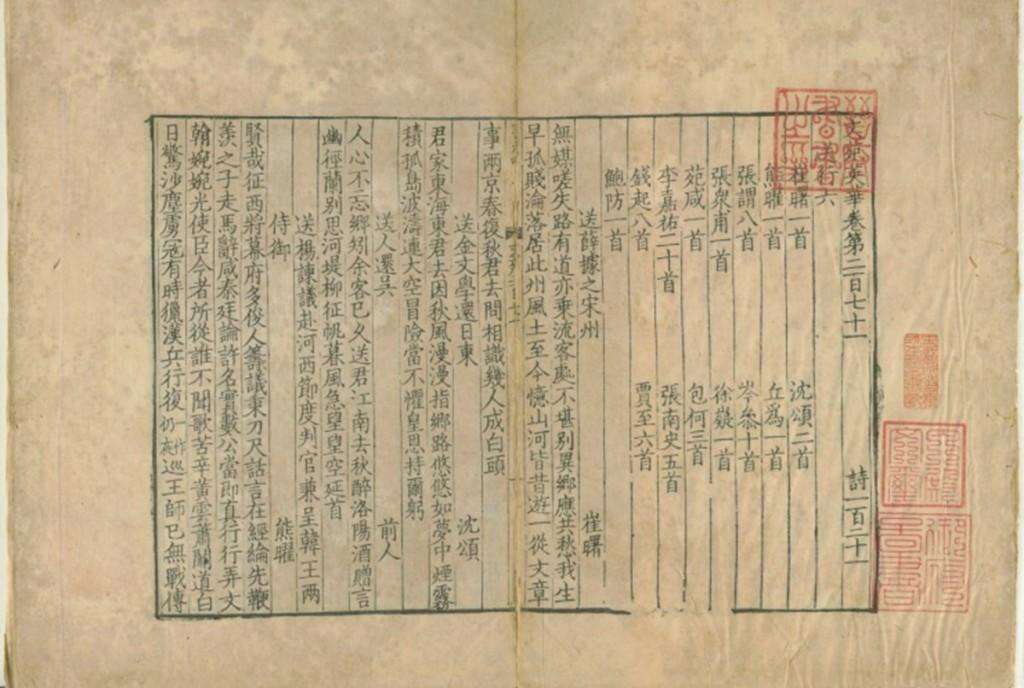 文苑英華卷第二百七十一 詩一百二十一
送行六
崔曙一首 沈頌二首
熊曜一首 丘為一首
張謂八首 岑參十首
張衆甫一首 徐嶷一首
苑咸一首 包何三首
李嘉祐二十首 張南史五首
錢起八首 賈至六首
鮑防一首
送薛據之宋州 崔曙
無媒嗟失路有道亦乗流客處不堪別異鄉應共愁我生
早孤賤淪落居此州風土至今憶山河皆昔遊一從文章
事兩京春復秋君去問相識幾人成白頭
送金文學還日東 沈頌
君家東海東君去因秋風漫漫指鄉路悠悠如夢中煙霧
積孤島波濤連大空冒險當不懼皇恩持爾躬
送人還吳 前人
人心不忘鄉矧余客已久送君江南去秋醉洛陽酒贈言
幽徑蘭別思河堤柳征帆暮風急望望空延首
送楊諫議赴河西節度判官兼呈韓王兩
侍御 熊曜
賢哉征西將幕府多俊人籌議秉刀尺話言在經綸先鞭
羨之子走馬辭咸秦廷論許名實數公當即真行行弄文
翰婉婉光使臣今者所從誰不聞歌苦辛黄雲蕭關道白
日驚沙塵虜冦有時獵漢兵行復巡王師已無戰傳